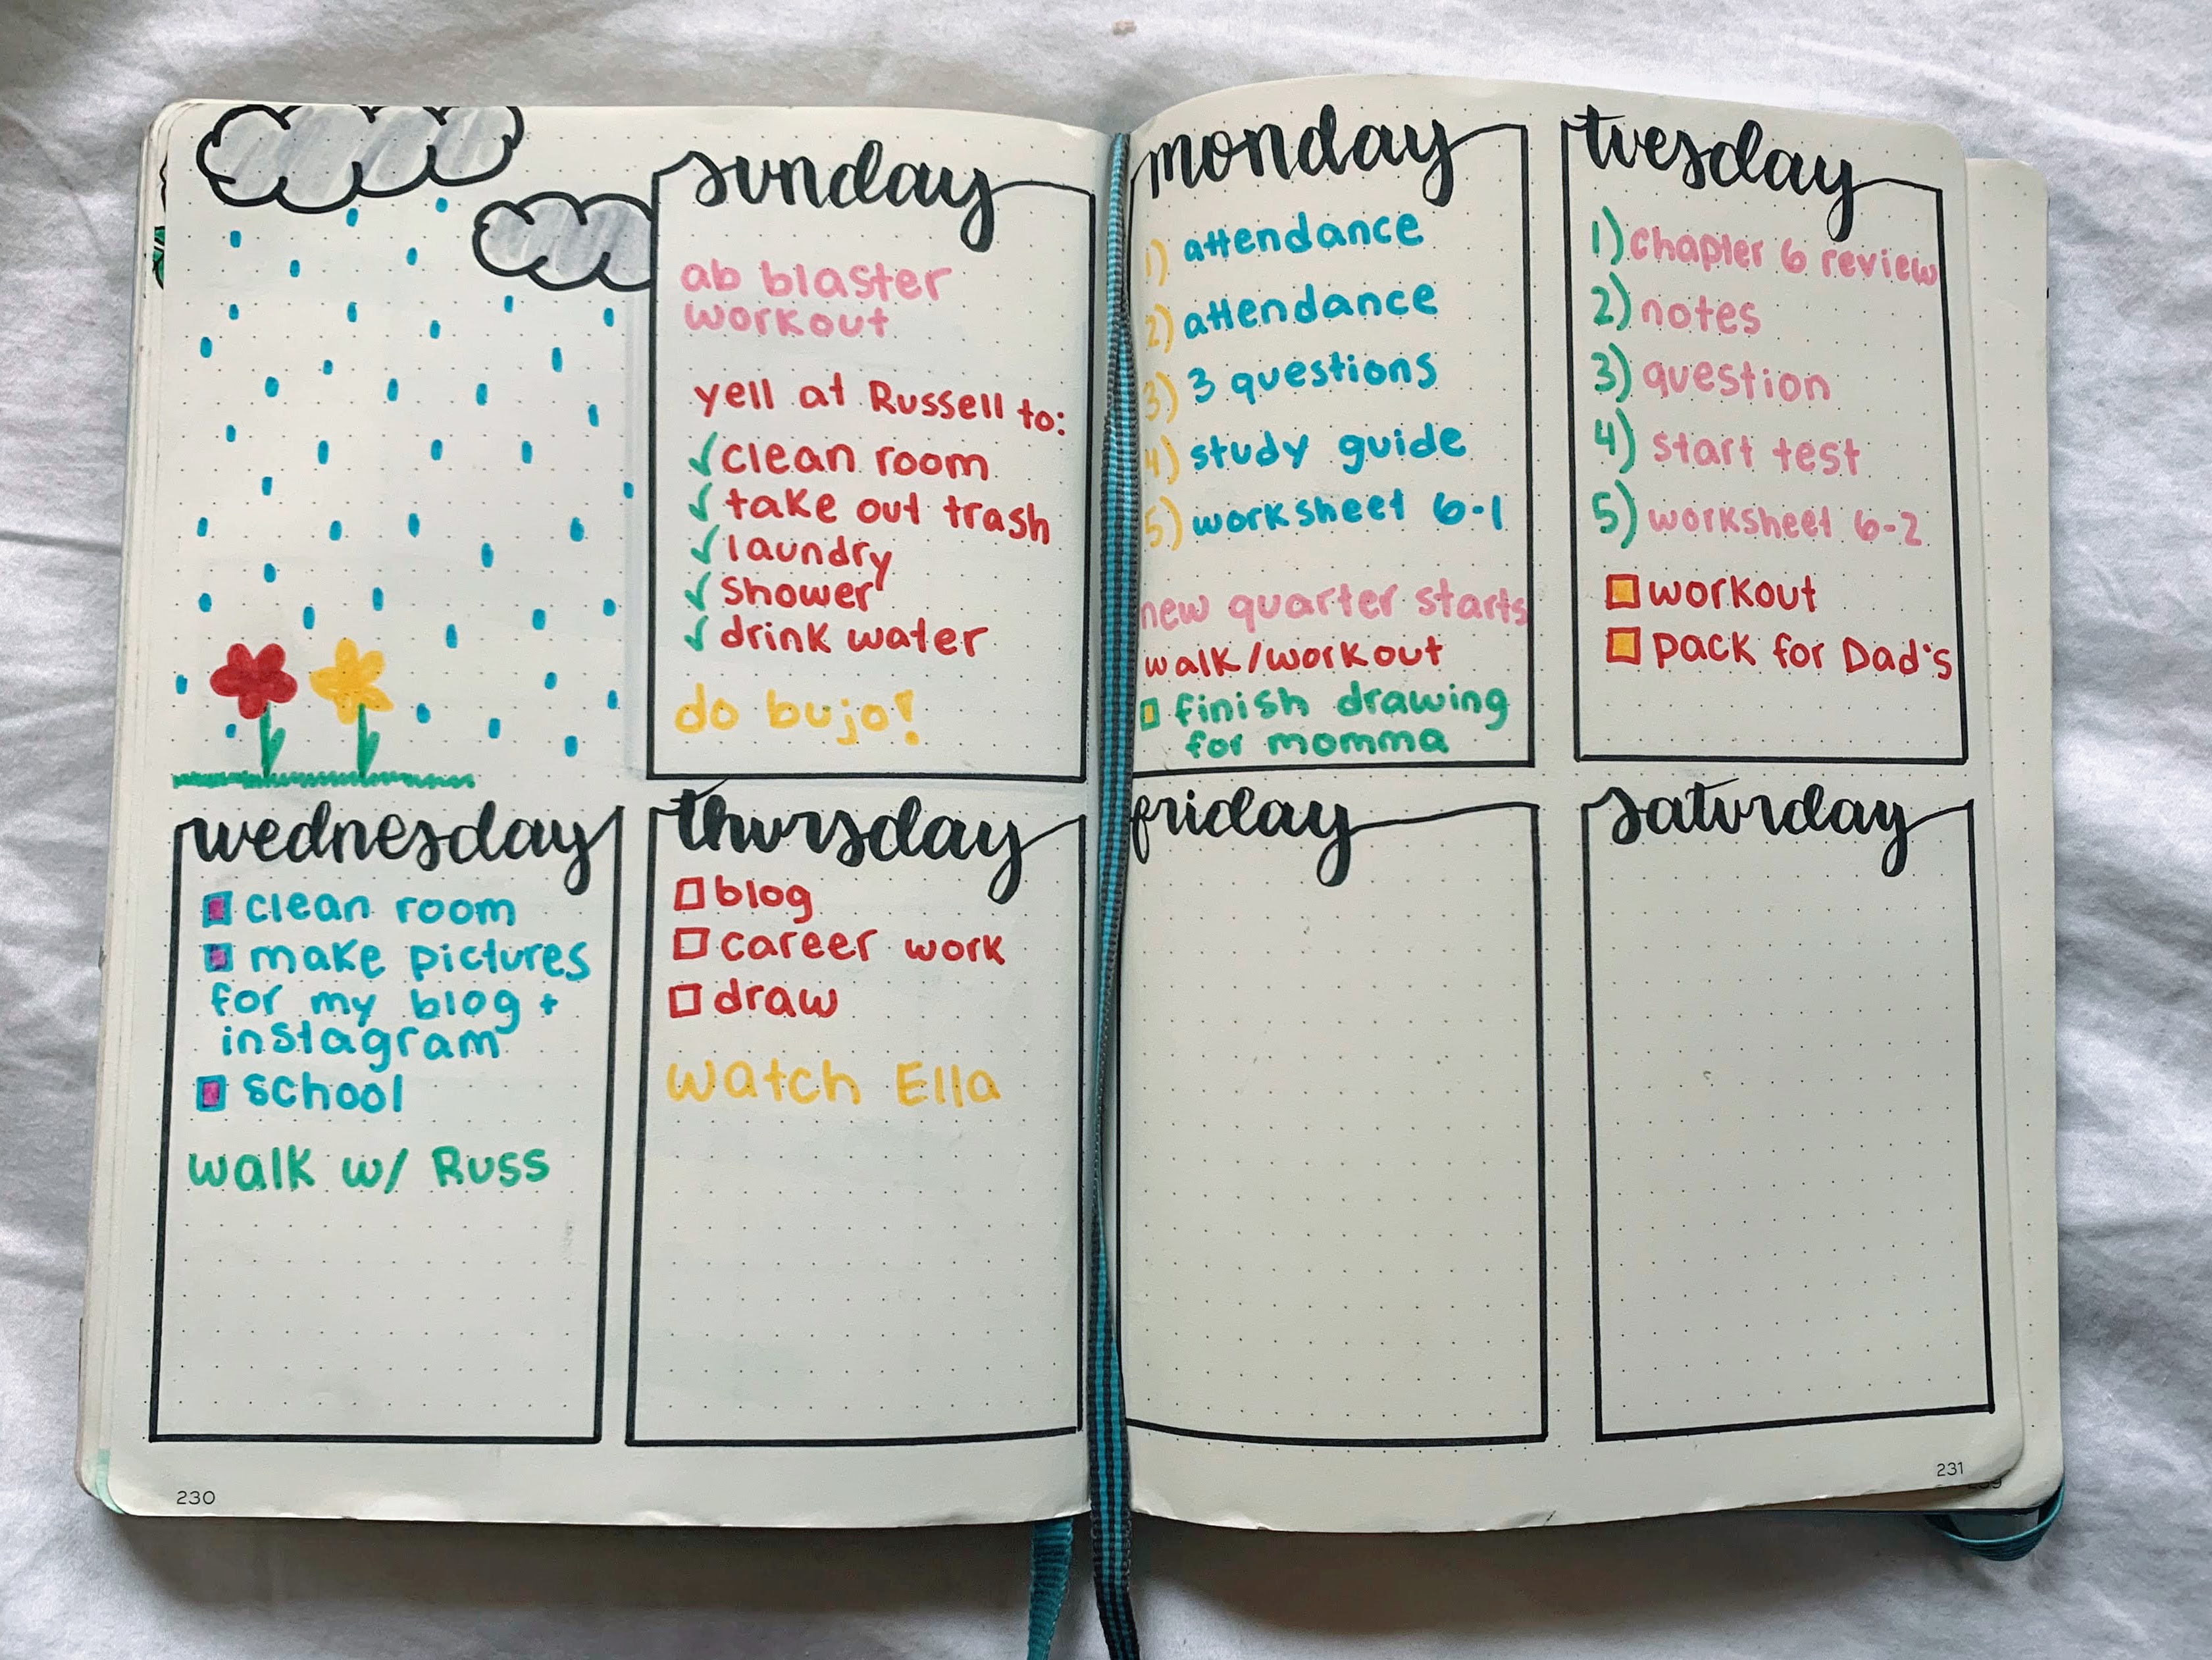 sunday
ab blaster
workout
yell at Russell to:
clean room
take out trash
laundry
shower
drink water
do bujo!
monday
1) attendance
2) attendance
3) 3 questions
4) study guide
5) worksheet 6-1
new quarter starts
walk/workout
finish drawing
for momma
tuesday
1) chapter 6 review
2) notes
3) question
4) start test
5) worksheet 6-2
workout
pack for Dad's
wednesday
clean room
make pictures
for my blog +
instagram
school
walk w/ Russ
thursday
blog
career work
draw
watch Ella
friday
saturday
230
231